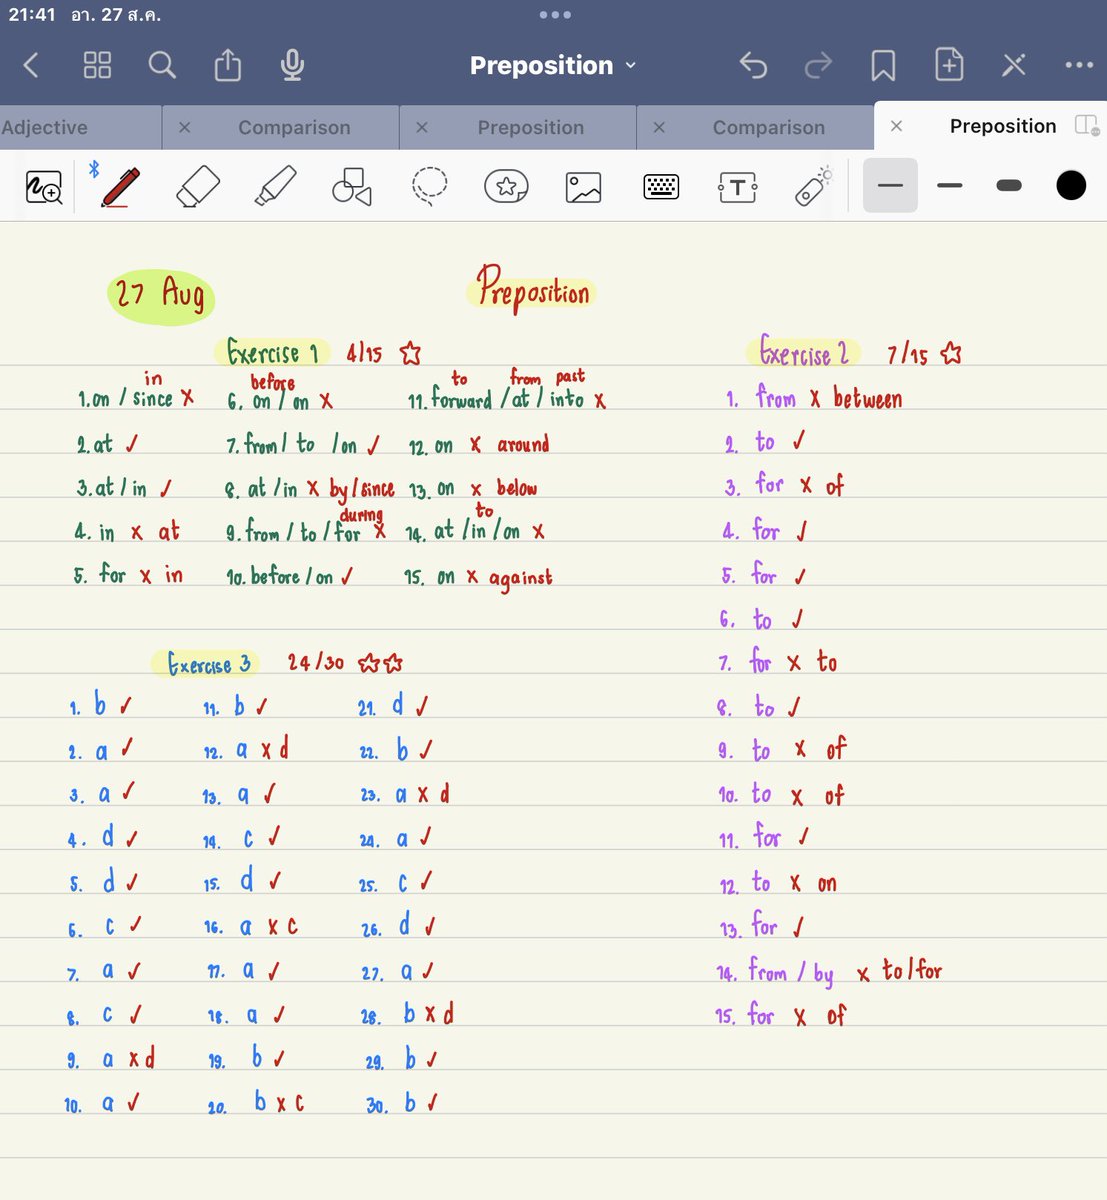 21:41 อา. 27 ส.ค.
Preposition
Adjective
Comparison
Preposition
Comparison
Preposition
T
27 Aug
Preposition
Exercise 1 4/15
in
1. on / since x
2. at ✓
3. at / in ✓
4. in x at
5. for x in
before
6. on / on x
7. from / to / on ✓
8. at / in x by / since
during
9. from / to / for x
10. before / on ✓
to from past
11. forward / at / into x
12. on x around
13. on x below
to
14. at / in / on x
15. on x against
Exercise 2 7/15
1. from x between
2. to ✓
3. for x of
4. for ✓
5. for ✓
6. to ✓
7. for x to
8. to ✓
9. to x of
10. to x of
11. for ✓
12. to x on
13. for ✓
14. from / by x to / for
15. for x of
Exercise 3 24/30
1. b ✓
2. a ✓
3. a ✓
4. d ✓
5. d ✓
6. c ✓
7. a ✓
8. c ✓
9. a x d
10. a ✓
11. b ✓
12. a x d
13. a ✓
14. c ✓
15. d ✓
16. a x c
17. a ✓
18. a ✓
19. b ✓
20. b x c
21. d ✓
22. b ✓
23. a x d
24. a ✓
25. c ✓
26. d ✓
27. a ✓
28. b x d
29. b ✓
30. b ✓